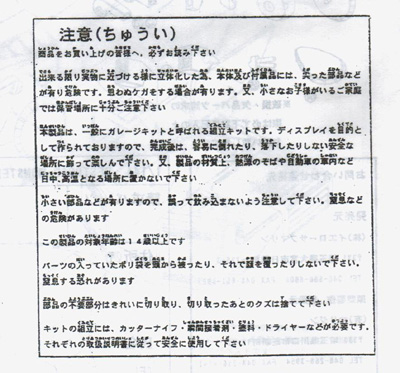 注意(ちゅうい)
商品をお買い上げの皆様へ、必ずお読み下さい
出来る限り実物に近づける様に立体化した為、本体及び付属品には、尖った部品など
が有り危険です。思わぬケガをする場合が有ります。又、小さなお子様がいるご家庭
では保管場所に十分ご注意下さい
本製品は、一般にガレージキットと呼ばれる組立キットです。ディスプレイを目的と
して作られておりますので、完成後は、容易に倒れたり、落下したりしない安全な
場所に飾って楽しんで下さい。又、製品の材質上、熱源のそばや自動車の車内など
日中、高温となる場所に置かないで下さい
小さい部品などが有りますので、誤って飲み込まないよう注意して下さい。窒息など
の危険があります
この製品の対象年齢は14歳以上です
パーツの入っていたポリ袋を頭から被ったり、それで顔を覆ったりしないで下さい。
窒息する恐れがあります
部品の不要部分はきれいに切り取り、切り取ったあとのクズは捨てて下さい
キットの組立には、カッターナイフ・瞬間接着剤・塗料・ドライヤーなどが必要です。
それぞれの取扱説明書に従って安全に使用して下さい